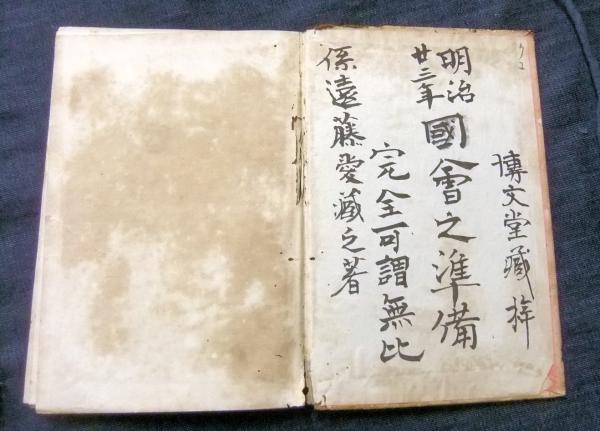 博文堂藏梓
明治廿三年國會之準備
完全可謂無比
係遠藤愛藏之著